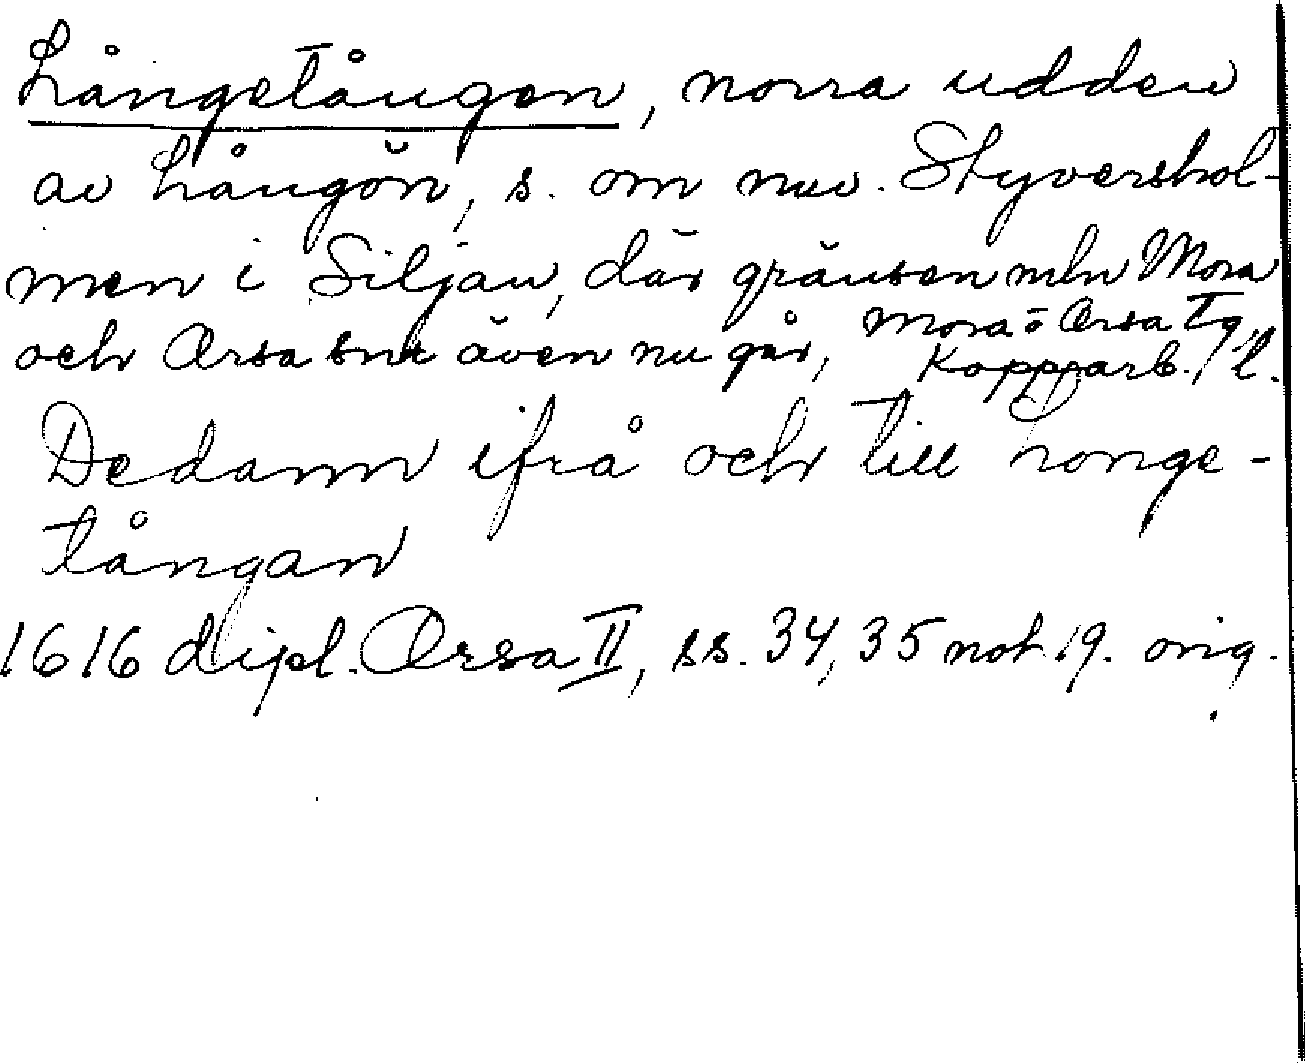 Långetången, norra udden
av Långön, s. om nuv. Styvershol-
men i Siljan, där gränsen mln Mora
och Orsa snr även nu går, Mora o Orsa Tg,
Kopparb. l.
Dedann ifrå och till Longe-
tångan
1616 dipl. Orsa II, ss. 34, 35 not 19. orig.